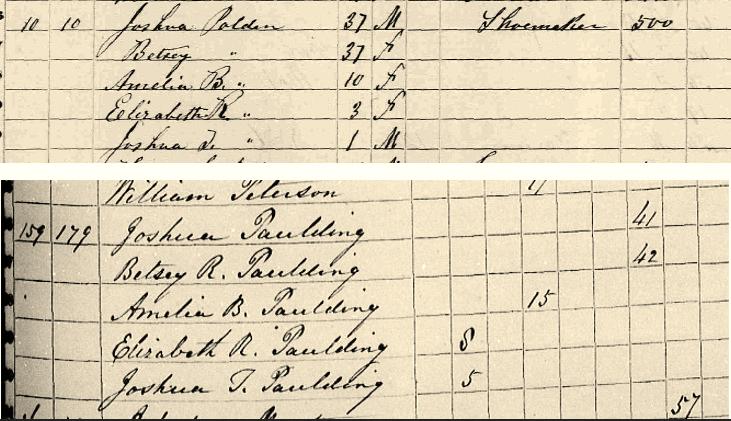 10 10 Joshua Polden 37 M Shoemaker 500
Betsey " 37 F
Amelia B. " 10 F
Elizabeth R. " 3 F
Joshua T. " 1 M
William Peterson 17
159 179 Joshua Paulding 41
Betsey R. Paulding 42
Amelia B. Paulding 15
Elizabeth R. Paulding 8
Joshua T. Paulding 5
57